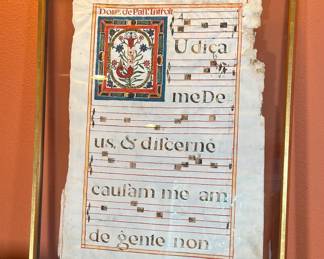 Dom̃. de Paſſ. Introit.
Udica
me De
us, & diſcerne
cauſam me am
de gente non